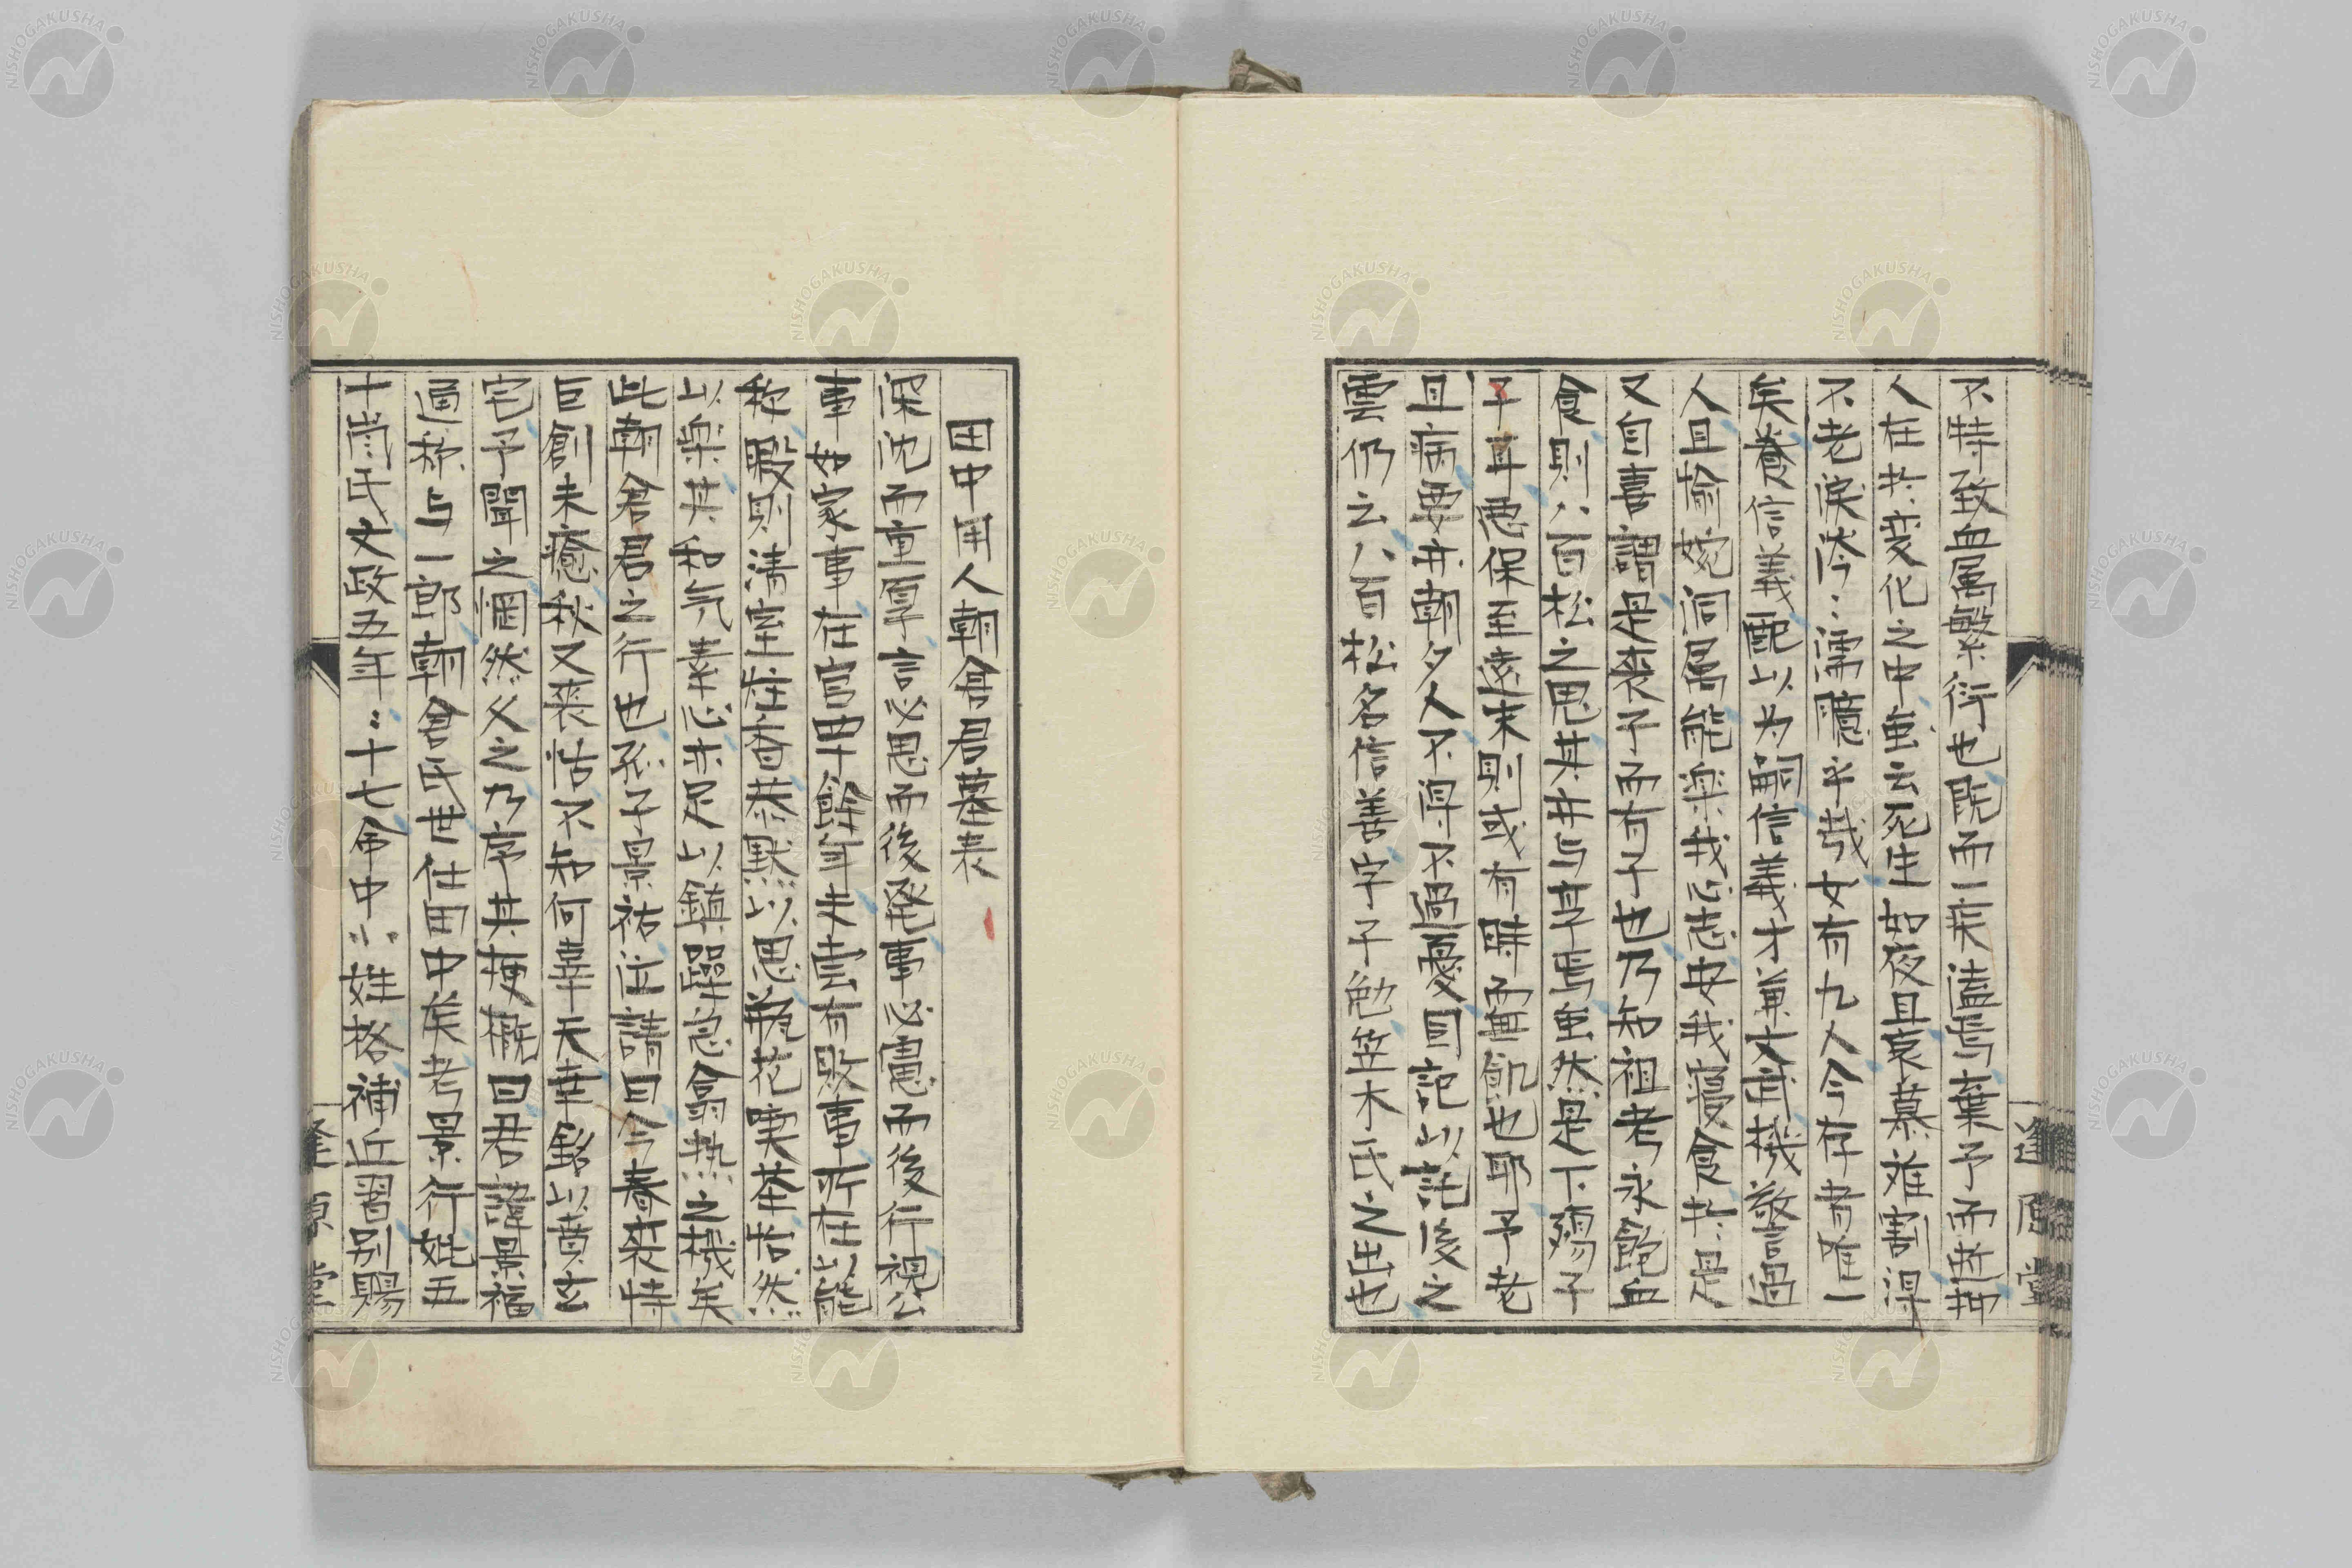 不特致血屬繁衍也既而一疾溘焉棄予而逝抑
人在其变化之中虽云死生如夜旦哀慕难割淂
不老淚滂〻濡臆乎哉女有九人今存者唯一
矣養信義配以为嗣信義才兼文武機敬言過
人且愉婉洞屬能楽我心志安我寝食其是
又自喜謂是喪子而有子也乃知祖考永饗血
食則八百松之思其并与其焉虽然是不殤子
子耳慮保至遠末則或有興而無飢也耶予老
且病要其朝夕人不淂不過憂因記以託後之
雲仍云八百松名信善字子勉笠木氏之出也
田中用人朝倉君墓表
深沈而重厚言必思而後発事必慮而後行視公
事如家事在官卅餘年失尝有敗事所在以能
称毀則清坐在斎恭默以思瓶花奥茶怡然
以楽其和气養心未足以鎮躁急翕热之機矣
此朝倉君之行也孫子景祐泣請曰今春我特
巨創未癒秋又喪怙不知何辜天幸
宅予聞之惘然久之乃序其梗概曰君諱景福
通称与一郎朝倉氏世仕田中矦考景行妣五
十嵐氏文政五年〻十七命中小姓格補近習别賜
逢原堂